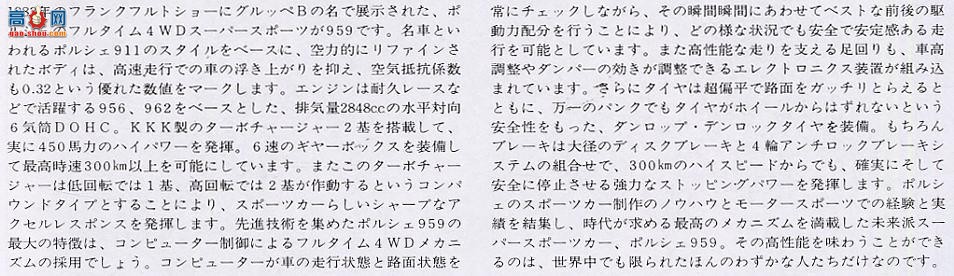 高手网
gao-shou.com
年のフランクフルトショーにグルッペBの名で展示された、ポ
フルタイム4WDスーパースポーツが959です。名車とい
われるポルシェ911のスタイルをベースに、空力的にリファインさ
れたボディは、高速走行での車の浮き上がりを抑え、空気抵抗係数
も0.32という優れた数値をマークします。エンジンは耐久レースな
どで活躍する956、962をベースとした、排気量2848ccの水平対向
6気筒DOHC。KKK製のターボチャージャー2基を搭載して、
実に450馬力のハイパワーを発揮。6速のギヤーボックスを装備し
て最高時速300km以上を可能にしています。またこのターボチャー
ジャーは低回転では1基、高回転では2基が作動するというコンパ
ウンドタイプとすることにより、スポーツカーらしいシャープなア
クセルレスポンスを発揮します。先進技術を集めたポルシェ959の
最大の特徴は、コンピューター制御によるフルタイム4WDメカニ
ズムの採用でしょう。コンピューターが車の走行状態と路面状態を
常にチェックしながら、その瞬間瞬間にあわせてベストな前後の駆
動力配分を行うことにより、どの様な状況でも安全で安定感ある走
行を可能としています。また高性能な走りを支える足回りも、車高
調整やダンパーの効きが調整できるエレクトロニクス装置が組み込
まれています。さらにタイヤは超偏平で路面をガッチリとらえると
ともに、万一のパンクでもタイヤがホイールからはずれないという
安全性をもった、ダンロップ・デンロックタイヤを装備。もちろん
ブレーキは大径のディスクブレーキと4輪アンチロックブレーキシ
ステムの組合せで、300kmのハイスピードからでも、確実にそして
安全に停止させる強力なストッピングパワーを発揮します。ポルシ
ェのスポーツカー制作のノウハウとモータースポーツでの経験と実
績を結集し、時代が求める最高のメカニズムを満載した未来派スー
パースポーツカー、ポルシェ959。その高性能を味わうことができ
るのは、世界中でも限られたほんのわずかな人たちだけなのです。